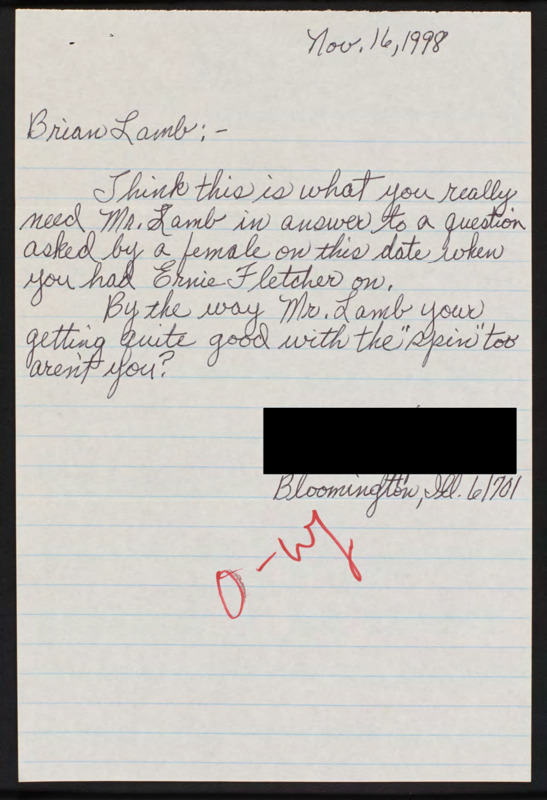 Nov. 16, 1998
Brian Lamb:-
Think this is what you really
need Mr. Lamb in answer to a question
asked by a female on this date when
you had Ernie Fletcher on.
By the way Mr. Lamb your
getting quite good with the "spin" too
aren't you?
Bloomington, Ill. 61701